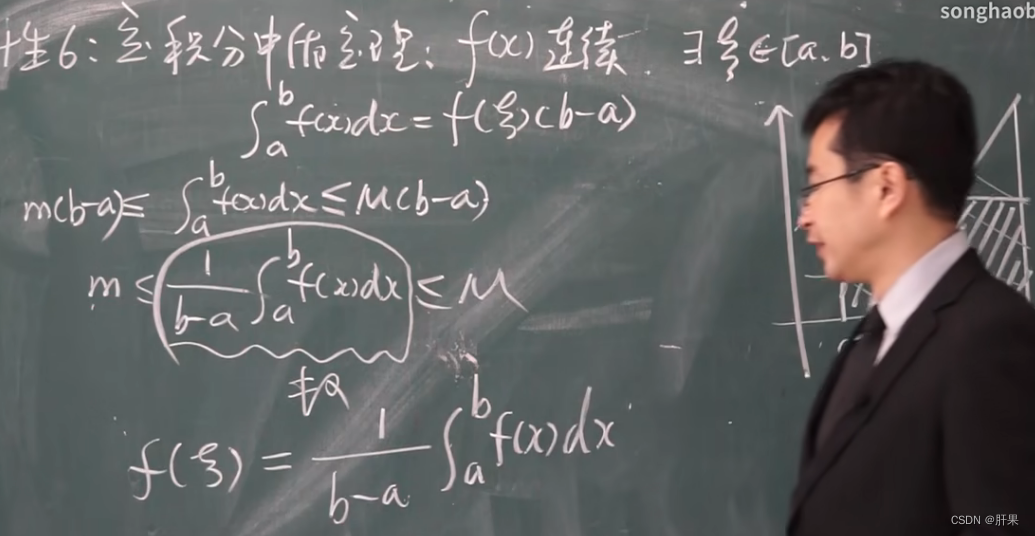 songhaob
性6:定积分中值定理:f(x)连续. ∃ξ∈[a,b]
∫_a^b f(x)dx = f(ξ)(b-a)
m(b-a) ≤ ∫_a^b f(x)dx ≤ M(b-a)
m ≤ 1/(b-a) ∫_a^b f(x)dx ≤ M
f(ξ) = 1/(b-a) ∫_a^b f(x)dx
CSDN @肝果